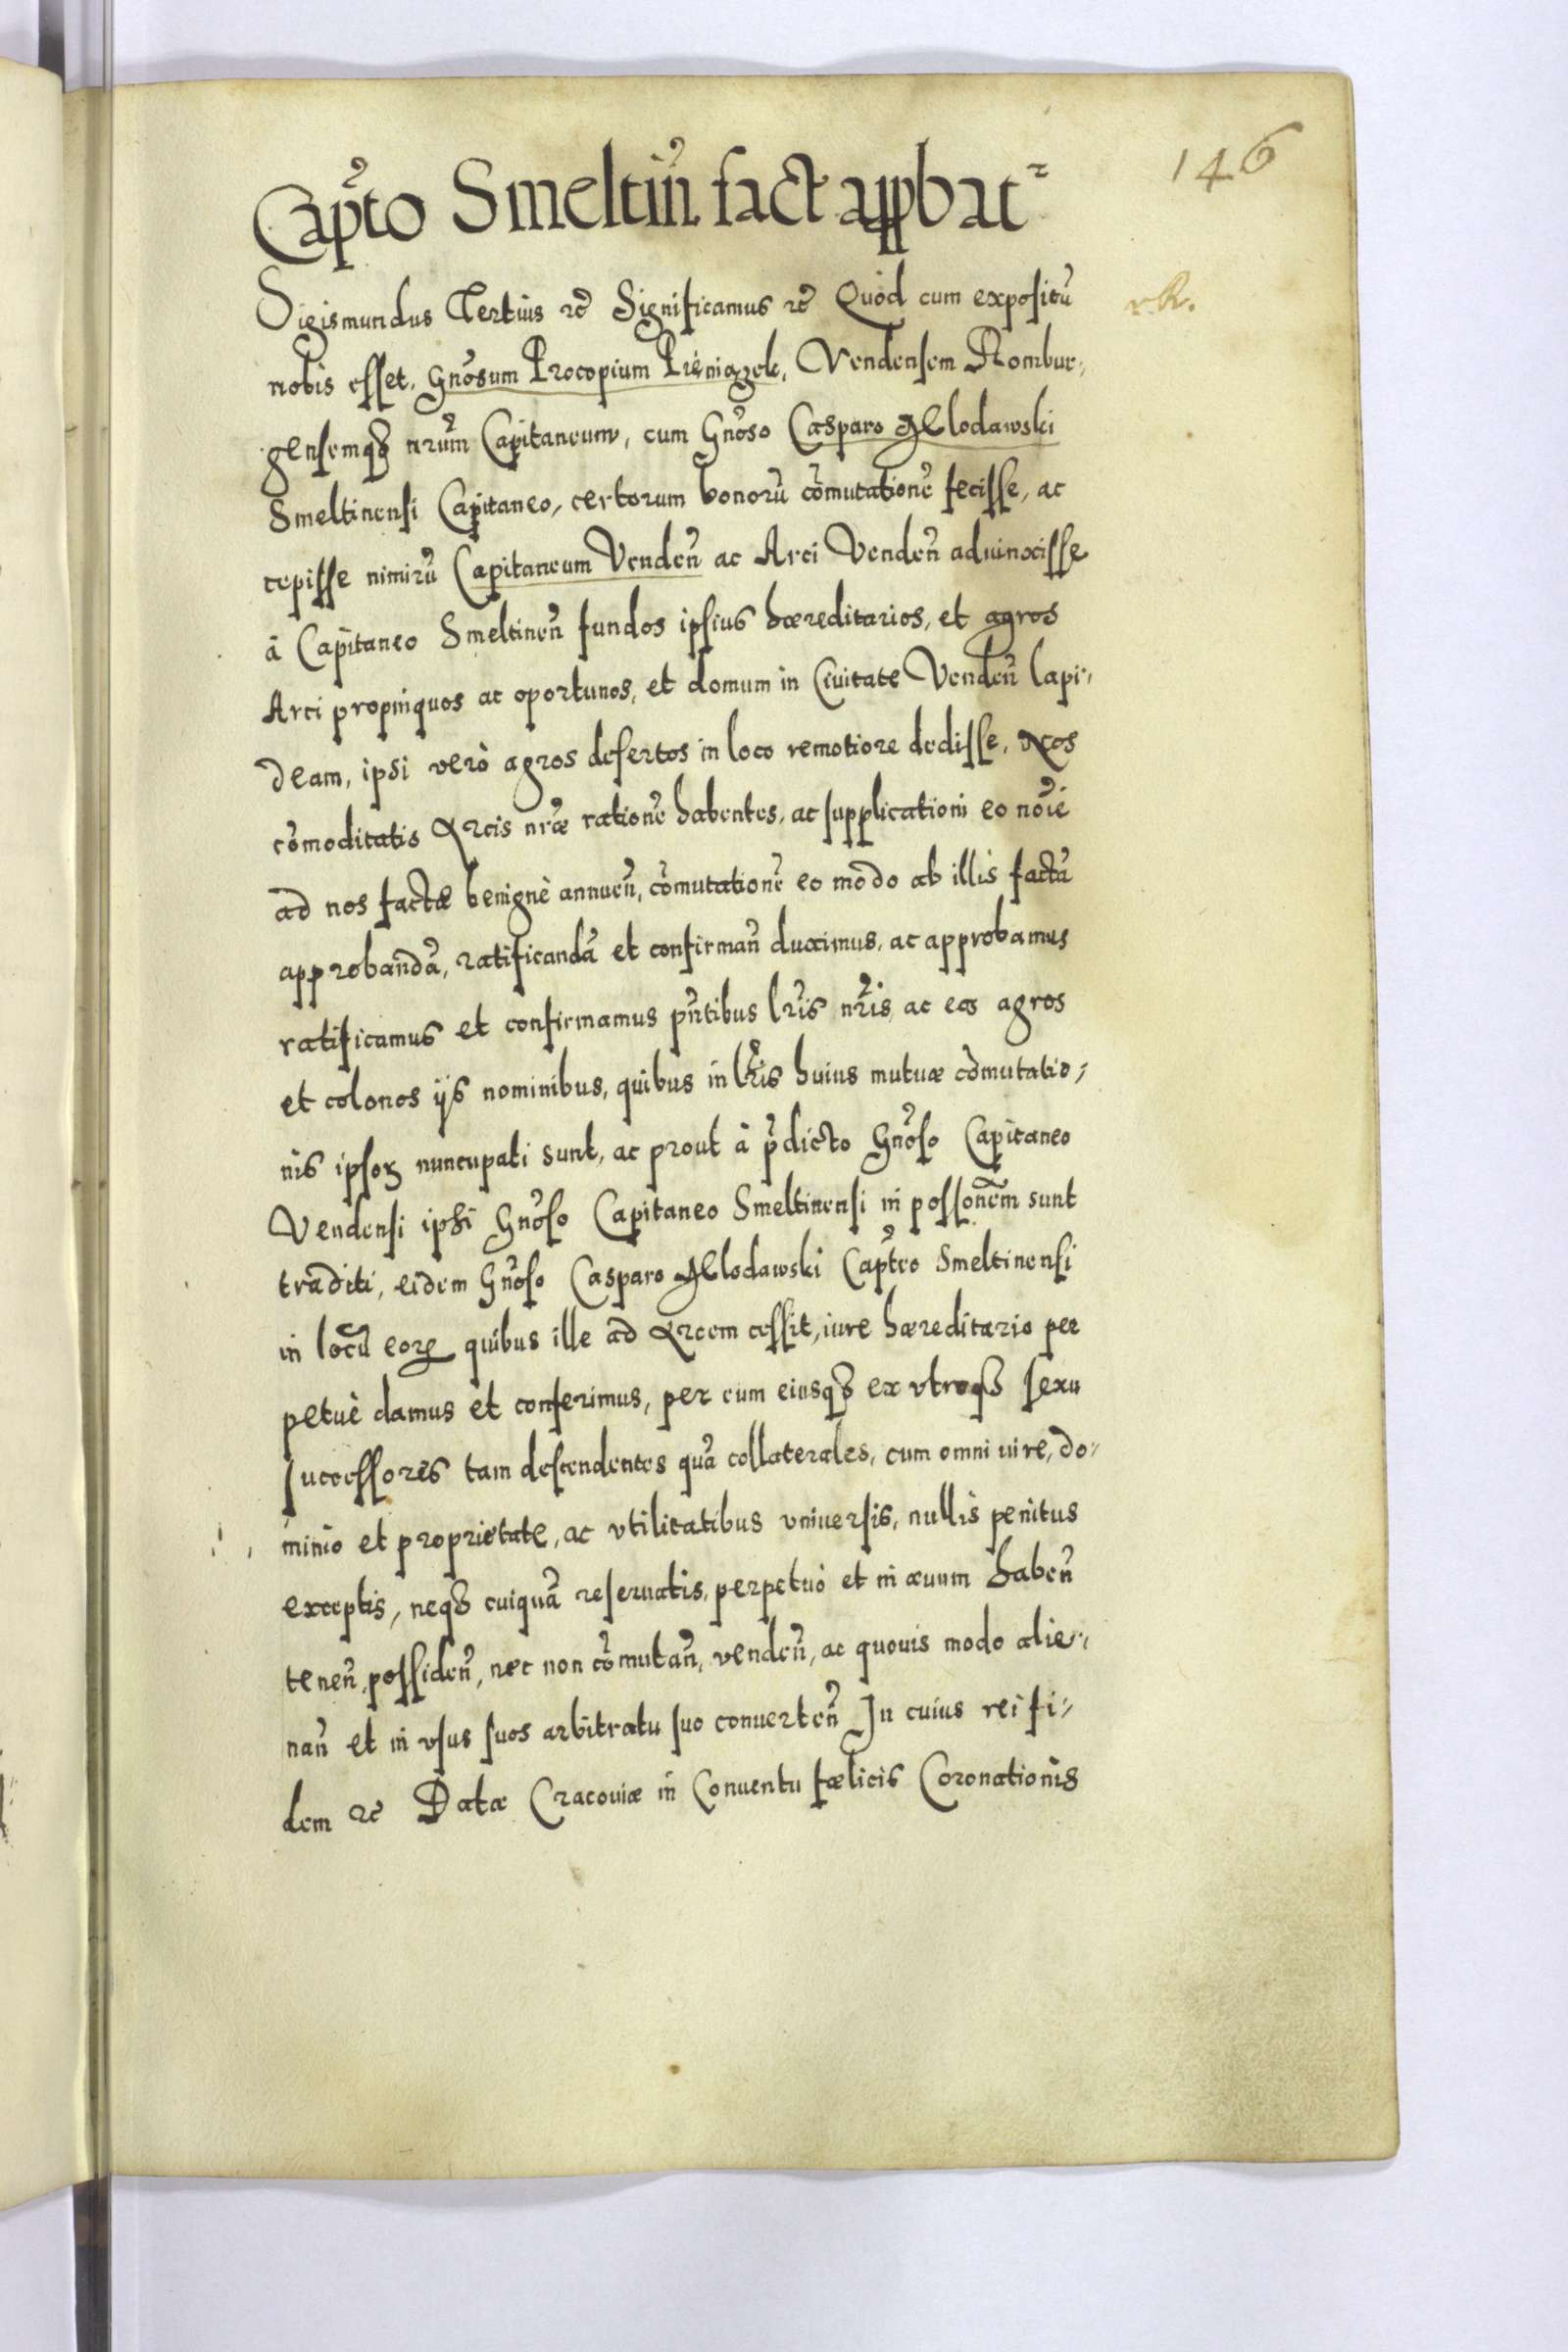 146
Capto Smeltiñ fact appbat
Sigismundus Tertius rc Significamus rc Quòd cum expositũ
nobis esset, Gnõsum Procopium Pieniązek, Vendensem Rombur,
gensemqȝ nrũm Capitaneum, cum Gnõso Casparo Mlodawski
Smeltinensi Capitaneo, certorum bonorũ cõmutationẽ fecisse, ac
cepisse nimirũ Capitaneum Vendeñ ac Arci Vendeñ adiunxisse
à Capitaneo Smeltineñ fundos ipsius hæreditarios, et agros
Arci propinquos ac oportunos, et domum in Ciuitate Vendeñ lapi,
deam, ipsi verò agros desertos in loco remotiore dedisse, Nos
cõmoditatis Arcis nræ rationẽ habentes, ac supplicationi eo noĩe
ad nos factæ benignè annueñ, cõmutationẽ eo modo ab illis factã
approbandã, ratificandã et confirmañ duximus, ac approbamus
ratificamus et confirmamus pñtibus lrĩs nrĩs, ac eos agros
et colonos ijs nominibus, quibus in lrĩs huius mutuæ cõmutatio,
nis ipsoꝝ nuncupati sunt, ac prout à p̃dicto Gnõso Capitaneo
Vendensi ipsi Gnõso Capitaneo Smeltinensi in possonẽm sunt
traditi, eidem Gnõso Casparo Mlodawski Capt̃eo Smeltinensi
in locũ eoꝝ quibus ille ad Arcem cessit, iure hæreditario per
petuè damus et conferimus, per eum eiusqȝ ex vtroqȝ sexu
successores tam descendentes quã collaterales, cum omni iure, do,
minio et proprietate, ac vtilitatibus vniuersis, nullis penitus
exceptis, neqȝ cuiquã reseruatis, perpetuò et in æuum habeñ
teneñ, possideñ, nec non cõmutañ, vendeñ, ac quouis modo alie,
nañ et in vsus suos arbitratu suo conuerteñ In cuius rei fi,
dem rc Datæ Cracouiæ in Conuentu fælicis Coronationis